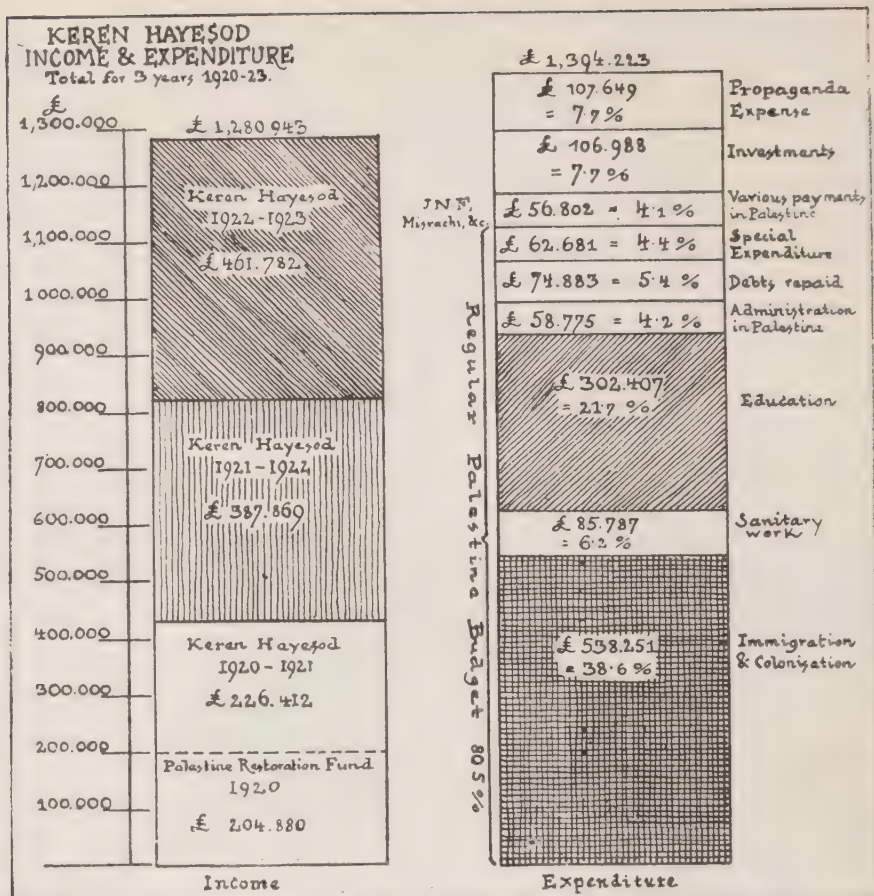 KEREN HAYESOD
INCOME & EXPENDITURE
Total for 3 years 1920-23.
£
1,300.000
1,200.000
1,100.000
1000.000
900.000
800.000
700.000
600.000
500.000
400.000
300.000
200.000
100.000
£ 1,280 943
Keren Hayesod
1922-1923
£461.782
Keren Hayesod
1921-1922
£ 387.869
Keren Hayesod
1920-1921
£226.412
Palestine Restoration Fund
1920
£ 204.880
Income
£ 1,394.223
£ 107.649
= 7.7%
Propaganda
Expense
£ 106.988
= 7.7%
Investments
JNF,
Misrachi, &c.
£ 56.802 = 4.1 %
Various payments
in Palestine
£ 62.681 = 4.4 %
Special
Expenditure
£ 74.883 = 5.4 %
Debts repaid
£ 58.775 = 4.2 %
Administration
in Palestine
£ 302.407
= 21.7 %
Education
£ 85.787
= 6.2 %
Sanitary
work
£ 538.251
= 38.6 %
Immigration
& Colonisation
Regular Palestine Budget 805%
Expenditure